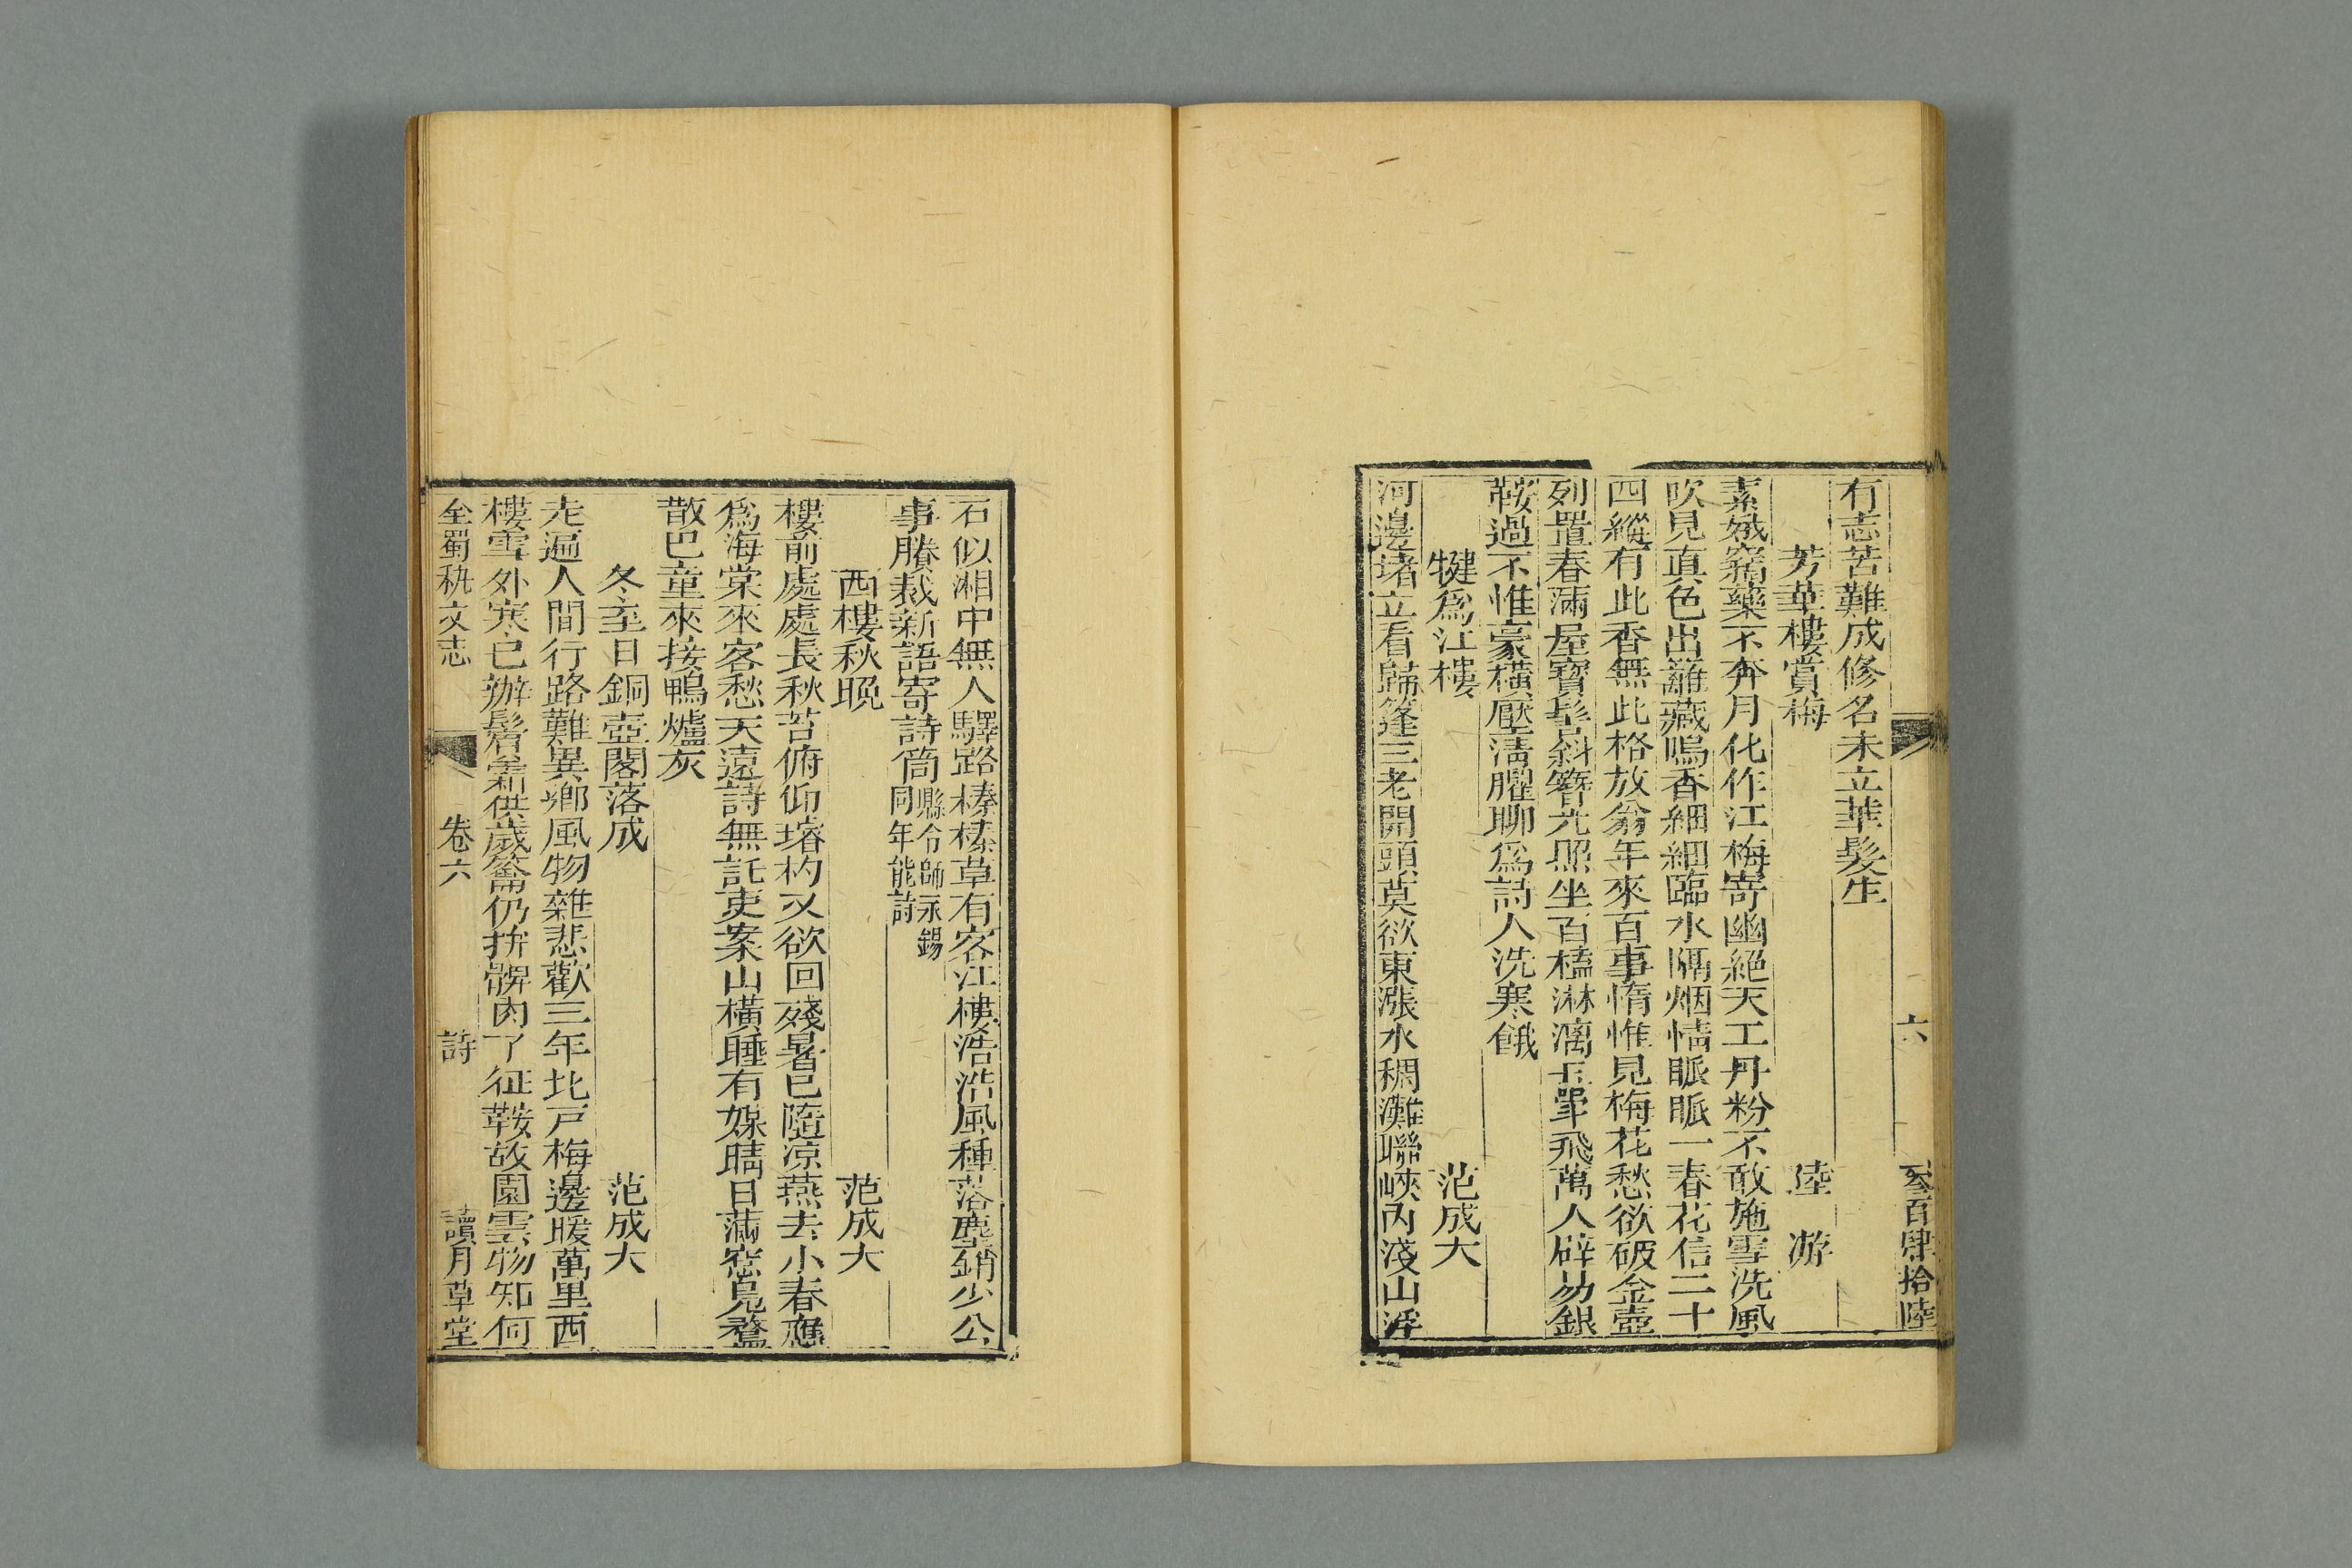 六　叄百肆拾陸
有志苦難成修名未立華髮生
芳華樓賞梅　陸游
素娥竊藥不奔月化作江梅寄幽絕天工丹粉不敢施雪洗風
吹見真色出籬藏塢香細細臨水隔烟情脈脈一春花信二十
四縱有此香無此格放翁年來百事惰惟見梅花愁欲破金壺
列置春滿屋寶髻斜簪光照坐百榼淋漓玉斝飛萬人辟易銀
鞍過不惟豪橫壓清臞聊爲詩人洗寒餓
犍爲江樓　范成大
河邊堵立看歸篷三老開頭莫欲東漲水稠灘聯峽內淺山浮
石似湘中無人驛路榛榛草有客江樓浩浩風種落塵銷少公
事賸裁新語寄詩筒縣令師永錫同年能詩
西樓秋晚　范成大
樓前處處長秋苔俯仰璿杓又欲回殘暑已隨凉燕去小春應
爲海棠來客愁天遠詩無託吏案山橫睡有媒晴日滿窓鳧鶩
散巴童來接鴨爐灰
冬至日銅壺閣落成　范成大
走遍人間行路難異鄉風物雜悲歡三年北戸梅邊暖萬里西
樓雪外寒已辦鬢霜供歲籥仍拚髀肉了征鞍故園雲物知何
全蜀秇文志　卷六　詩　讀月草堂